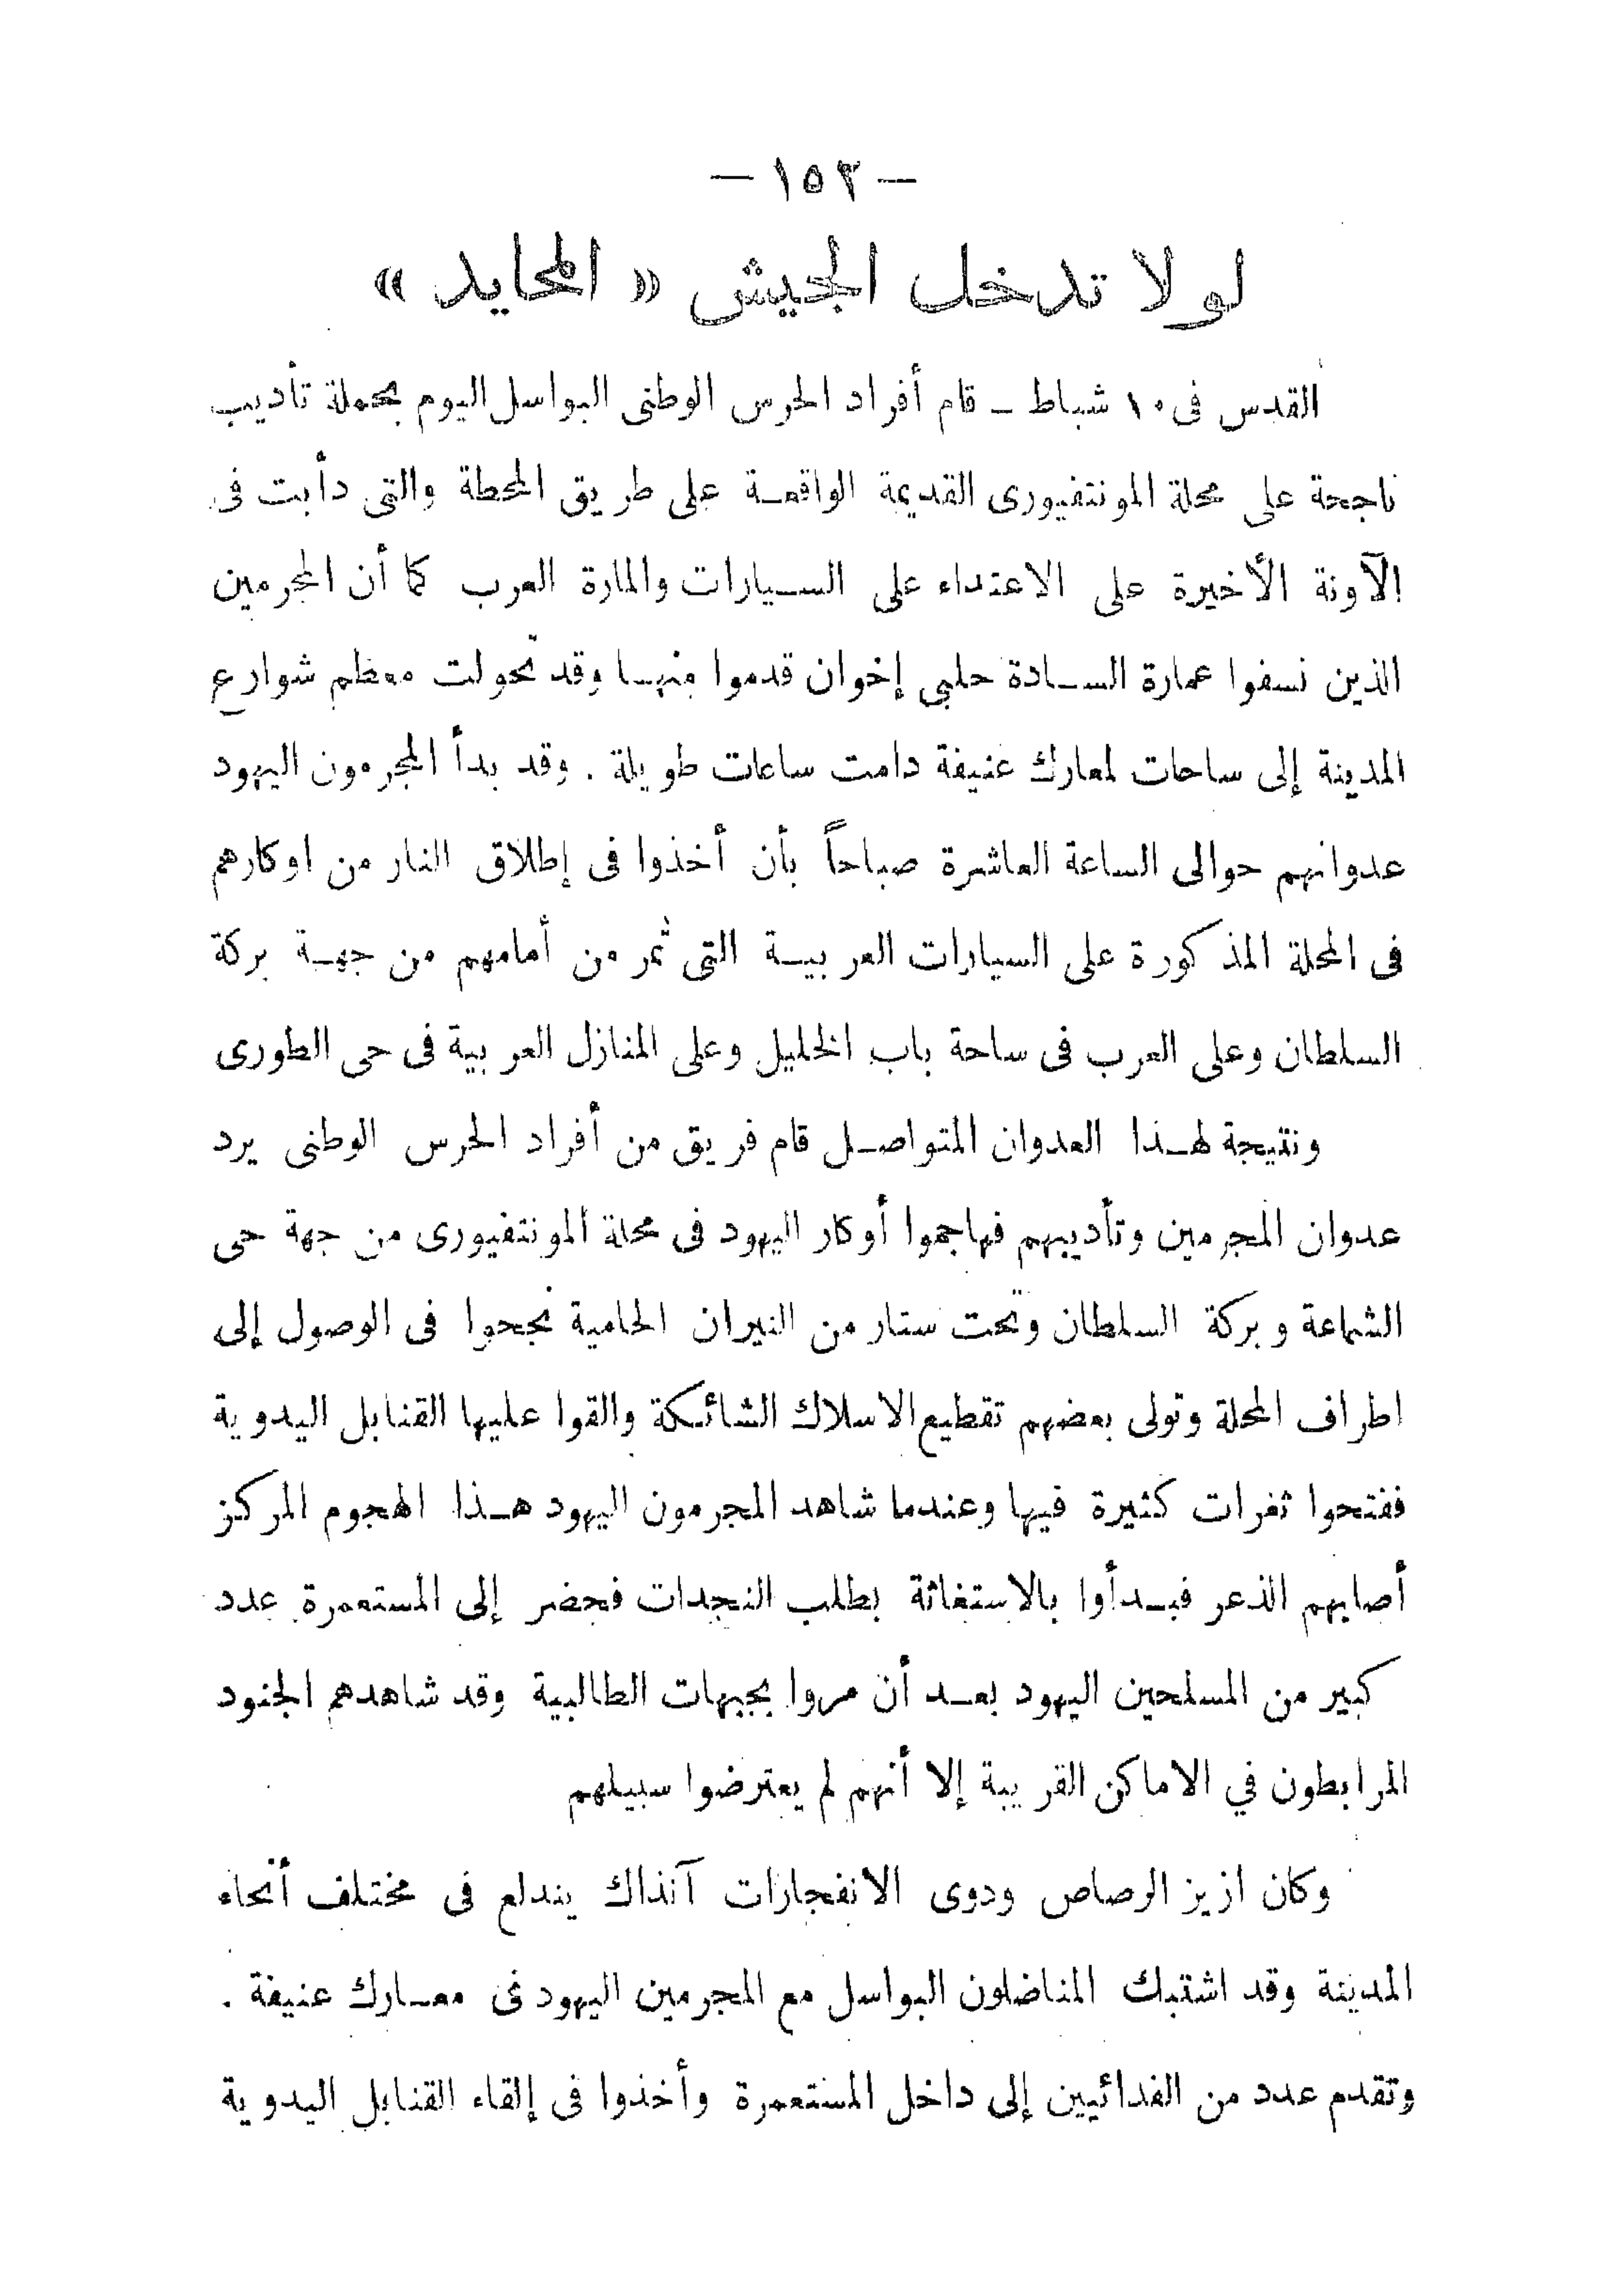 — ١٥٣ —
لولا تدخل الجيش « المحايد »
القدس فى ١٠ شباط – قام أفراد الحرس الوطنى البواسل اليوم بحملة تأديب
ناجحة على محلة المونتفيورى القديمة الواقعة على طريق المحطة والتى دأبت فى
الآونة الأخيرة على الاعتداء على السيارات والمارة العرب كما أن المجرمين
الذين نسفوا عمارة السادة حلبى إخوان قدموا منها وقد تحولت معظم شوارع
المدينة إلى ساحات لمعارك عنيفة دامت ساعات طويلة . وقد بدأ المجرمون اليهود
عدوانهم حوالى الساعة العاشرة صباحاً بأن أخذوا فى إطلاق النار من اوكارهم
فى المحلة المذكورة على السيارات العربية التى تمر من أمامهم من جهة بركة
السلطان وعلى العرب فى ساحة باب الخليل وعلى المنازل العربية فى حى الطورى
ونتيجة لهذا العدوان المتواصل قام فريق من أفراد الحرس الوطنى يرد
عدوان المجرمين وتأديبهم فهاجموا أوكار اليهود فى محلة المونتفيورى من جهة حى
الشماعة وبركة السلطان وتحت ستار من النيران الحامية نجحوا فى الوصول إلى
اطراف المحلة وتولى بعضهم تقطيع الاسلاك الشائكة والقوا عليها القنابل اليدوية
ففتحوا ثغرات كثيرة فيها وعندما شاهد المجرمون اليهود هذا الهجوم المركز
أصابهم الذعر فبدأوا بالاستغاثة بطلب النجدات فحضر إلى المستعمرة عدد
كبير من المسلحين اليهود بعد أن مروا بجبهات الطالبية وقد شاهدهم الجنود
المرابطون في الاماكن القريبة إلا أنهم لم يعترضوا سبيلهم
وكان ازيز الرصاص ودوى الانفجارات آنذاك يندلع فى مختلف أنحاء
المدينة وقد اشتبك المناضلون البواسل مع المجرمين اليهود فى معارك عنيفة .
وتقدم عدد من الفدائيين إلى داخل المستعمرة وأخذوا فى إلقاء القنابل اليدوية